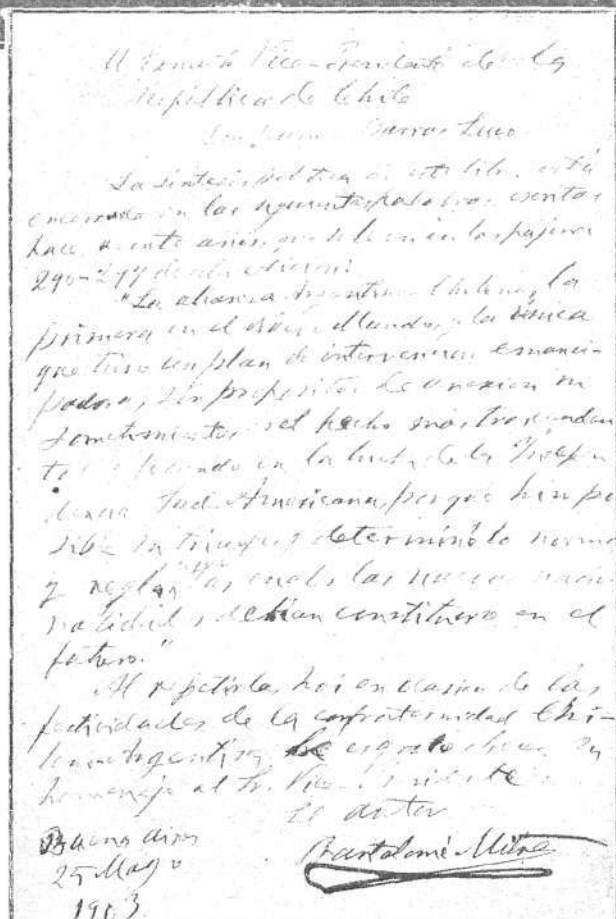 Al Exmo Sr. Vice-Presidente de la
República de Chile
Barros Luco
La síntesis política de este libro está
encerrada en las siguientes palabras, escritas
hace veinte años, que se leen en las pájinas
290-297 de edición:
"La alianza Argentino-Chilena, la
primera en el Mundo, y la única
que tuvo un plan de intervención emanci-
padora, sin propósitos de anexión ni
sometimiento, el hecho más trascenden
tal y fecundo en la lucha de la Indepen
dencia Sud-Americana, porque hizo po
sible su triunfo y determinó la norma
y reglas las cuales las nuevas nacio
nalidades debían constituirse en el
futuro."
Al repetirlas hoi en ocasión de las
festividades de la confraternidad Chi-
leno-Argentina, en
homenaje al Sr. Vice-Presidente
El autor
Bartolomé Mitre
Buenos Aires
25 Mayo
1903